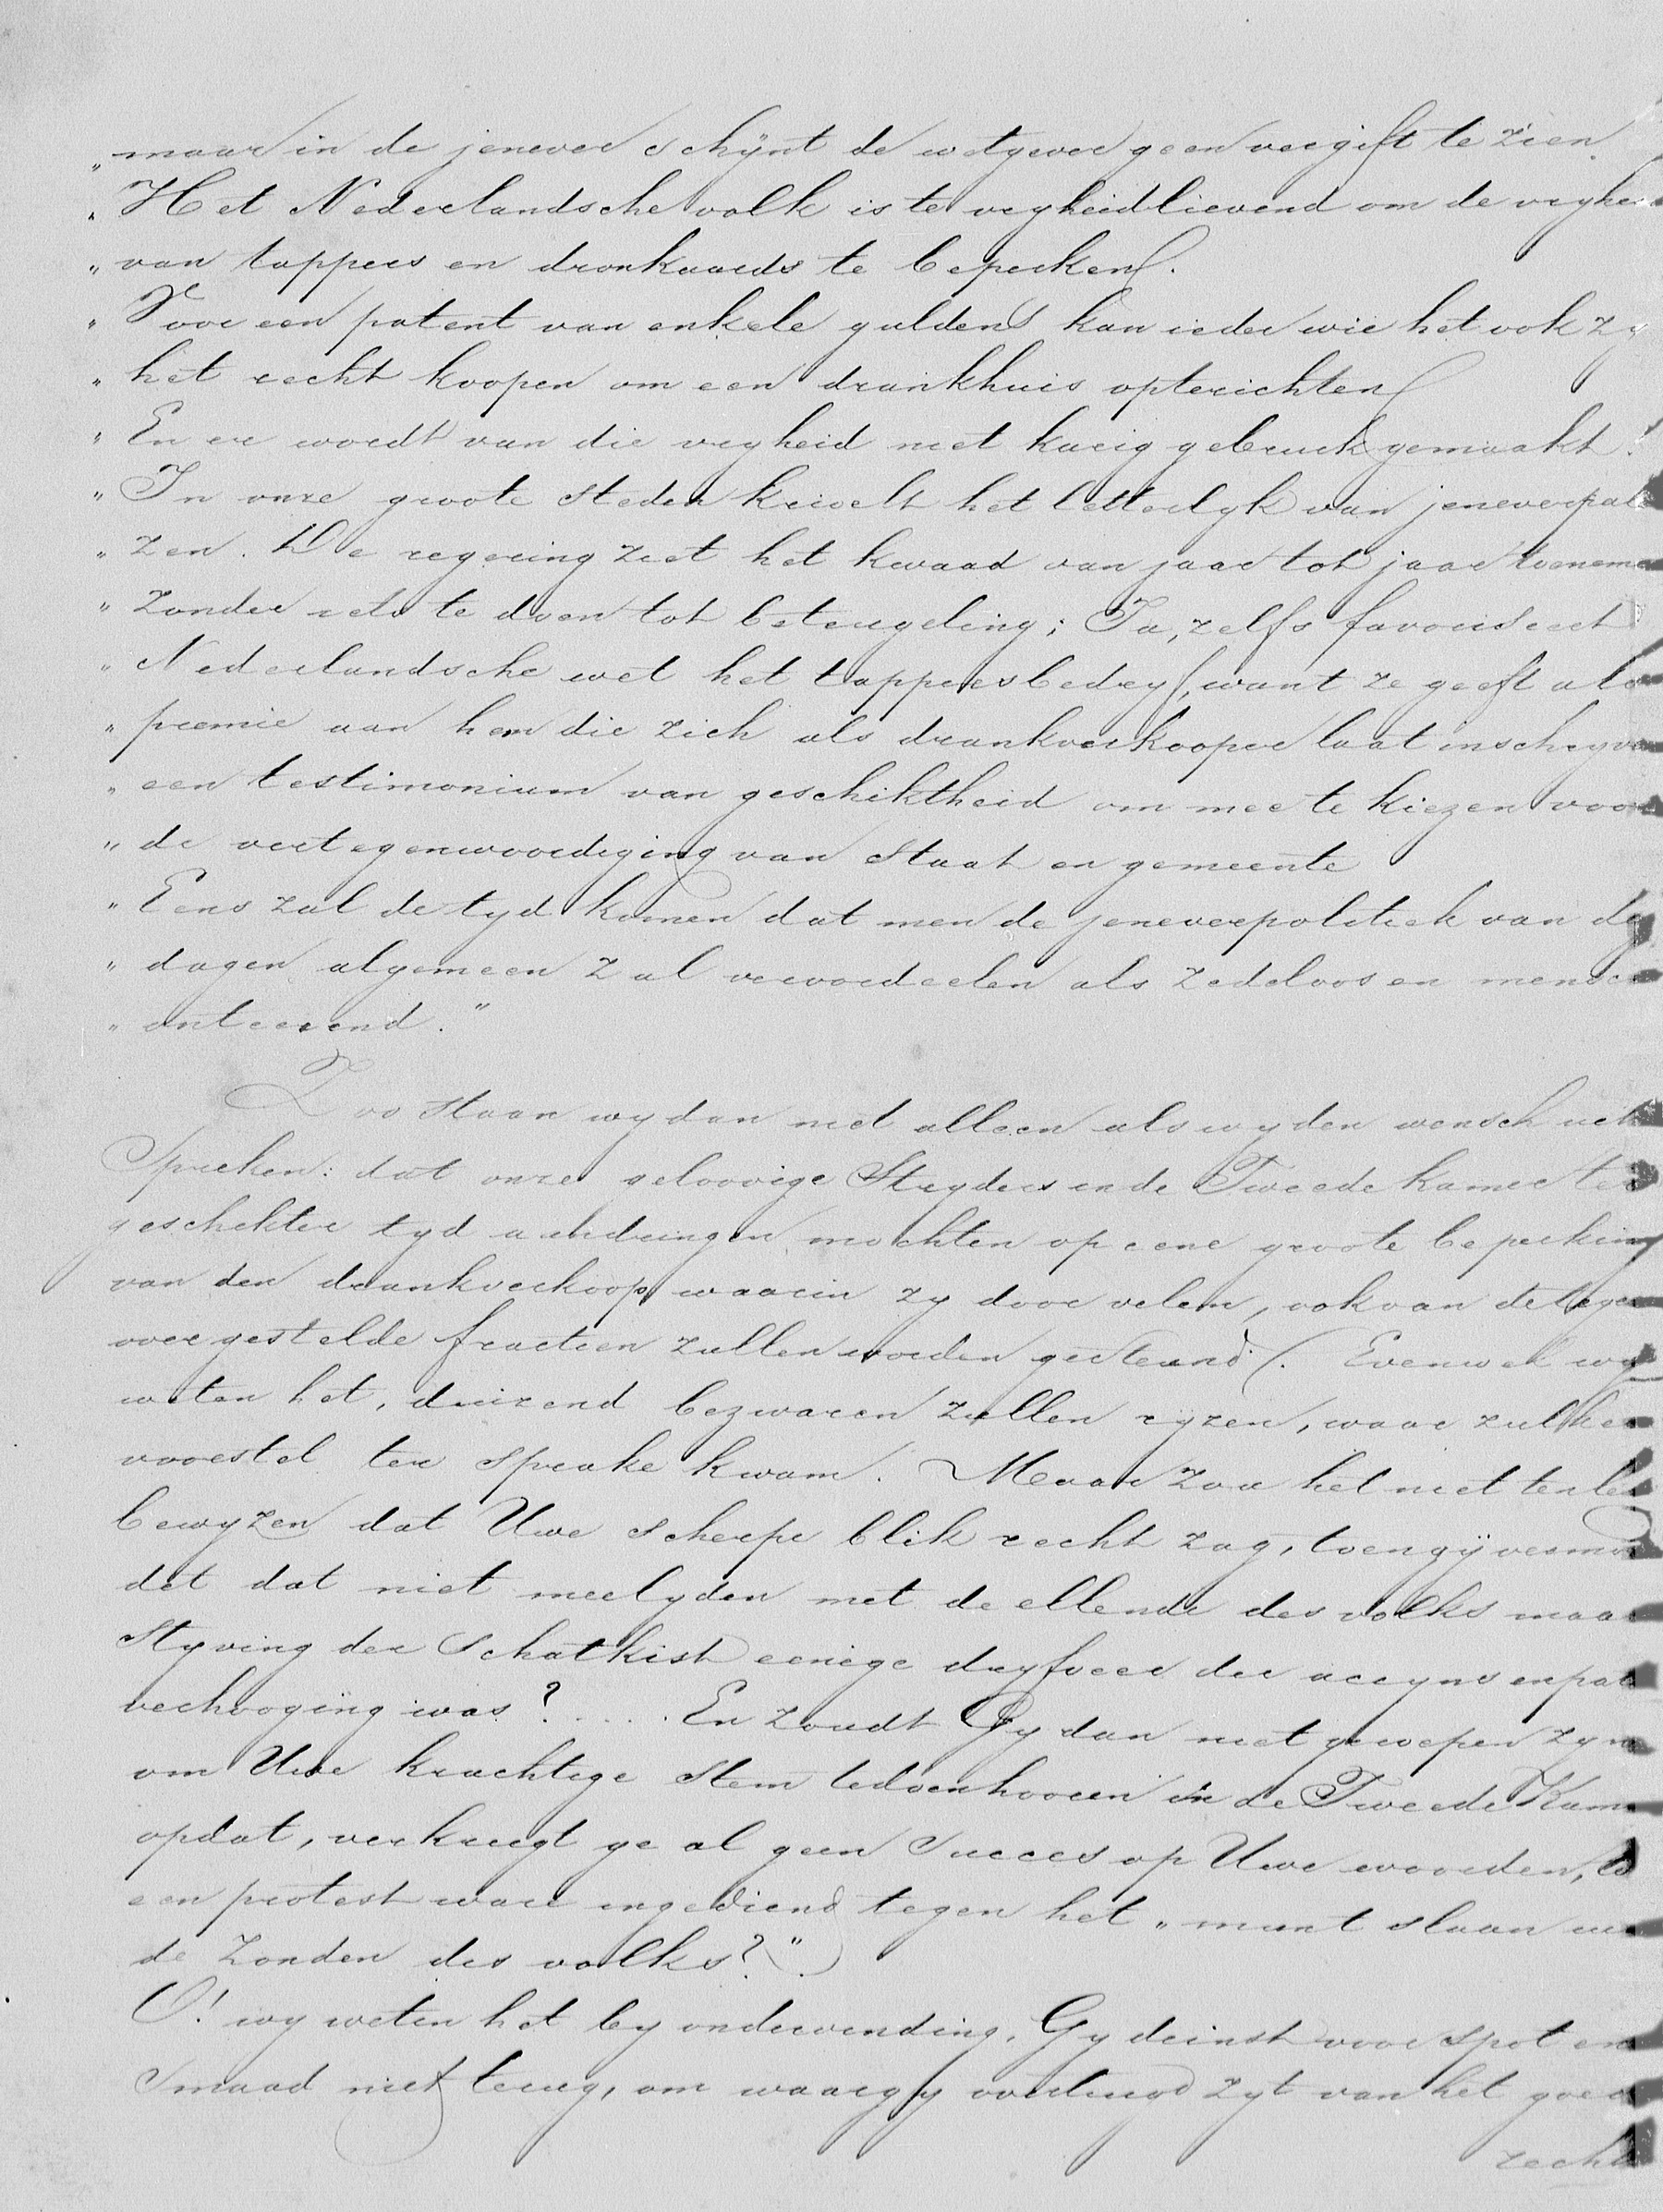 „ maar in de jenever schijnt de wetgever geen vergift te zien.
„ Het Nederlandsche volk is te vryheidlievend om de vryhei
„ van tappers en dronkaards te beperken.
„ Voor een patent van enkele guldens kan ieder wie het ook zy
„ het recht koopen om een drankhuis opterichten
„ En er wordt van die vryheid niet karig gebruik gemaakt!
„ In onze groote steden krioelt het letterlyk van jeneverpalei
„ zen. De regering ziet het kwaad van jaar tot jaar toeneme
„ zonder iets te doen tot beteugeling; Ja, zelfs favoriseert
„ Nederlandsche wet het tappersbedryf, want ze geeft als
„ premie aan hem die zich als drankverkooper laat inschryve
„ een testimonium van geschiktheid om mee te kiezen voor
„ de vertegenwoordiging van Staat en gemeente
„ Eens zal de tyd komen dat men de jeneverpolitiek van de
„ dagen algemeen zal veroordeelen als zedeloos en mensch
„ onteerend."
Zoo staan wy dan niet alleen als wy den wensch uit
Spreken: dat onze geloovige Stryders in de Tweede kamer ter
geschikter tyd aandringen mochten op eene groote beperking
van den drankverkoop, waarin zy door velen, ook van de tegen
overgestelde fractien zullen worden gesteund. Evenwel wy
weten het, duizend bezwaren zullen ryzen, waar zulk een
voorstel ter sprake kwam. Maar zou het niet ten
bewyzen dat Uwe scherpe blik recht zag, toen gij vermoe
det dat niet meelyden met de ellende des volks maar
Styving der Schatkist eenige dryfveer der accyns en pat
verhooging was? .... En zoudt Gy dan niet geroepen zyn
om Uwe krachtige stem te doen hooren in de Tweede Kame
opdat, verkreegt ge al geen Succes op Uwe woorden, to
een protest ware ingediend tegen het „munt slaan uit
de zonden des volks?"
O! wy weten het by ondervinding, Gy deinst voor spot en
Smaad niet terug, om waar gy overtuigd zyt van het goed
recht